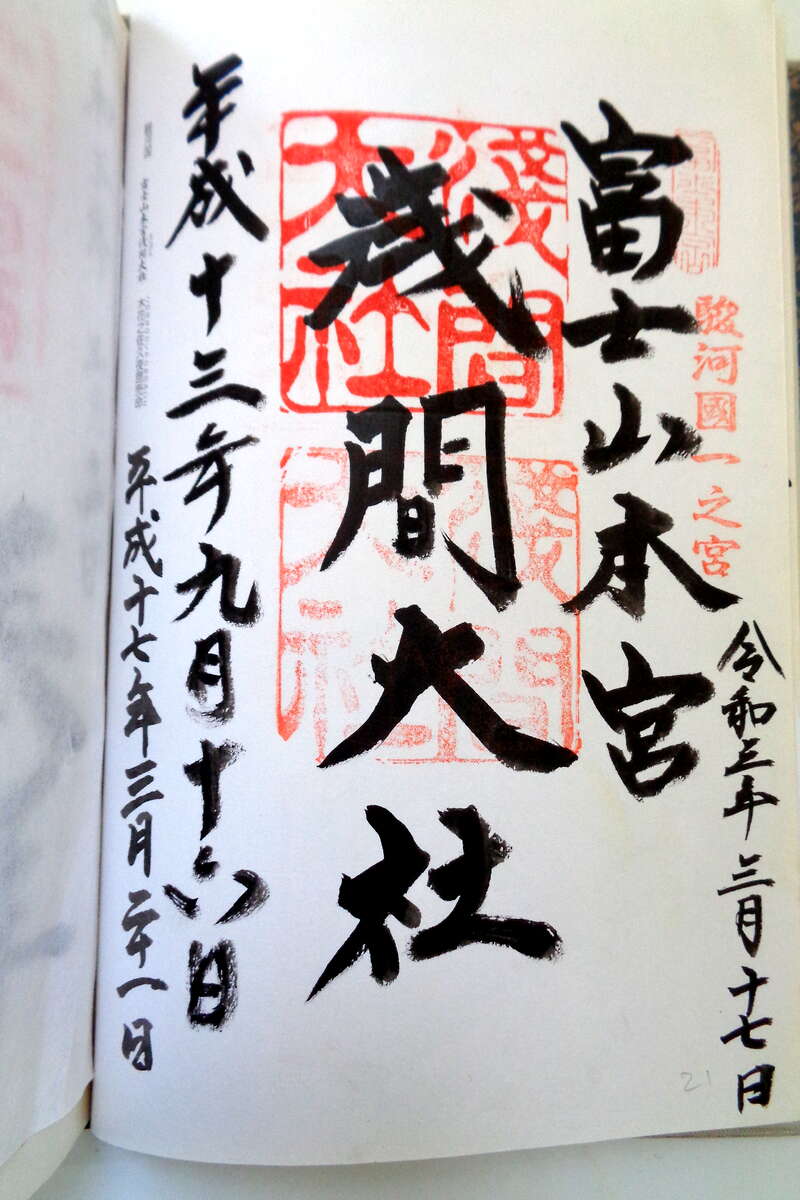 駿河國一之宮
令和三年三月十七日
富士山本宮
浅間大社
淺間大社
淺間大社
平成十三年九月十六日
平成十七年三月二十一日
富士山本宮浅間大社
21